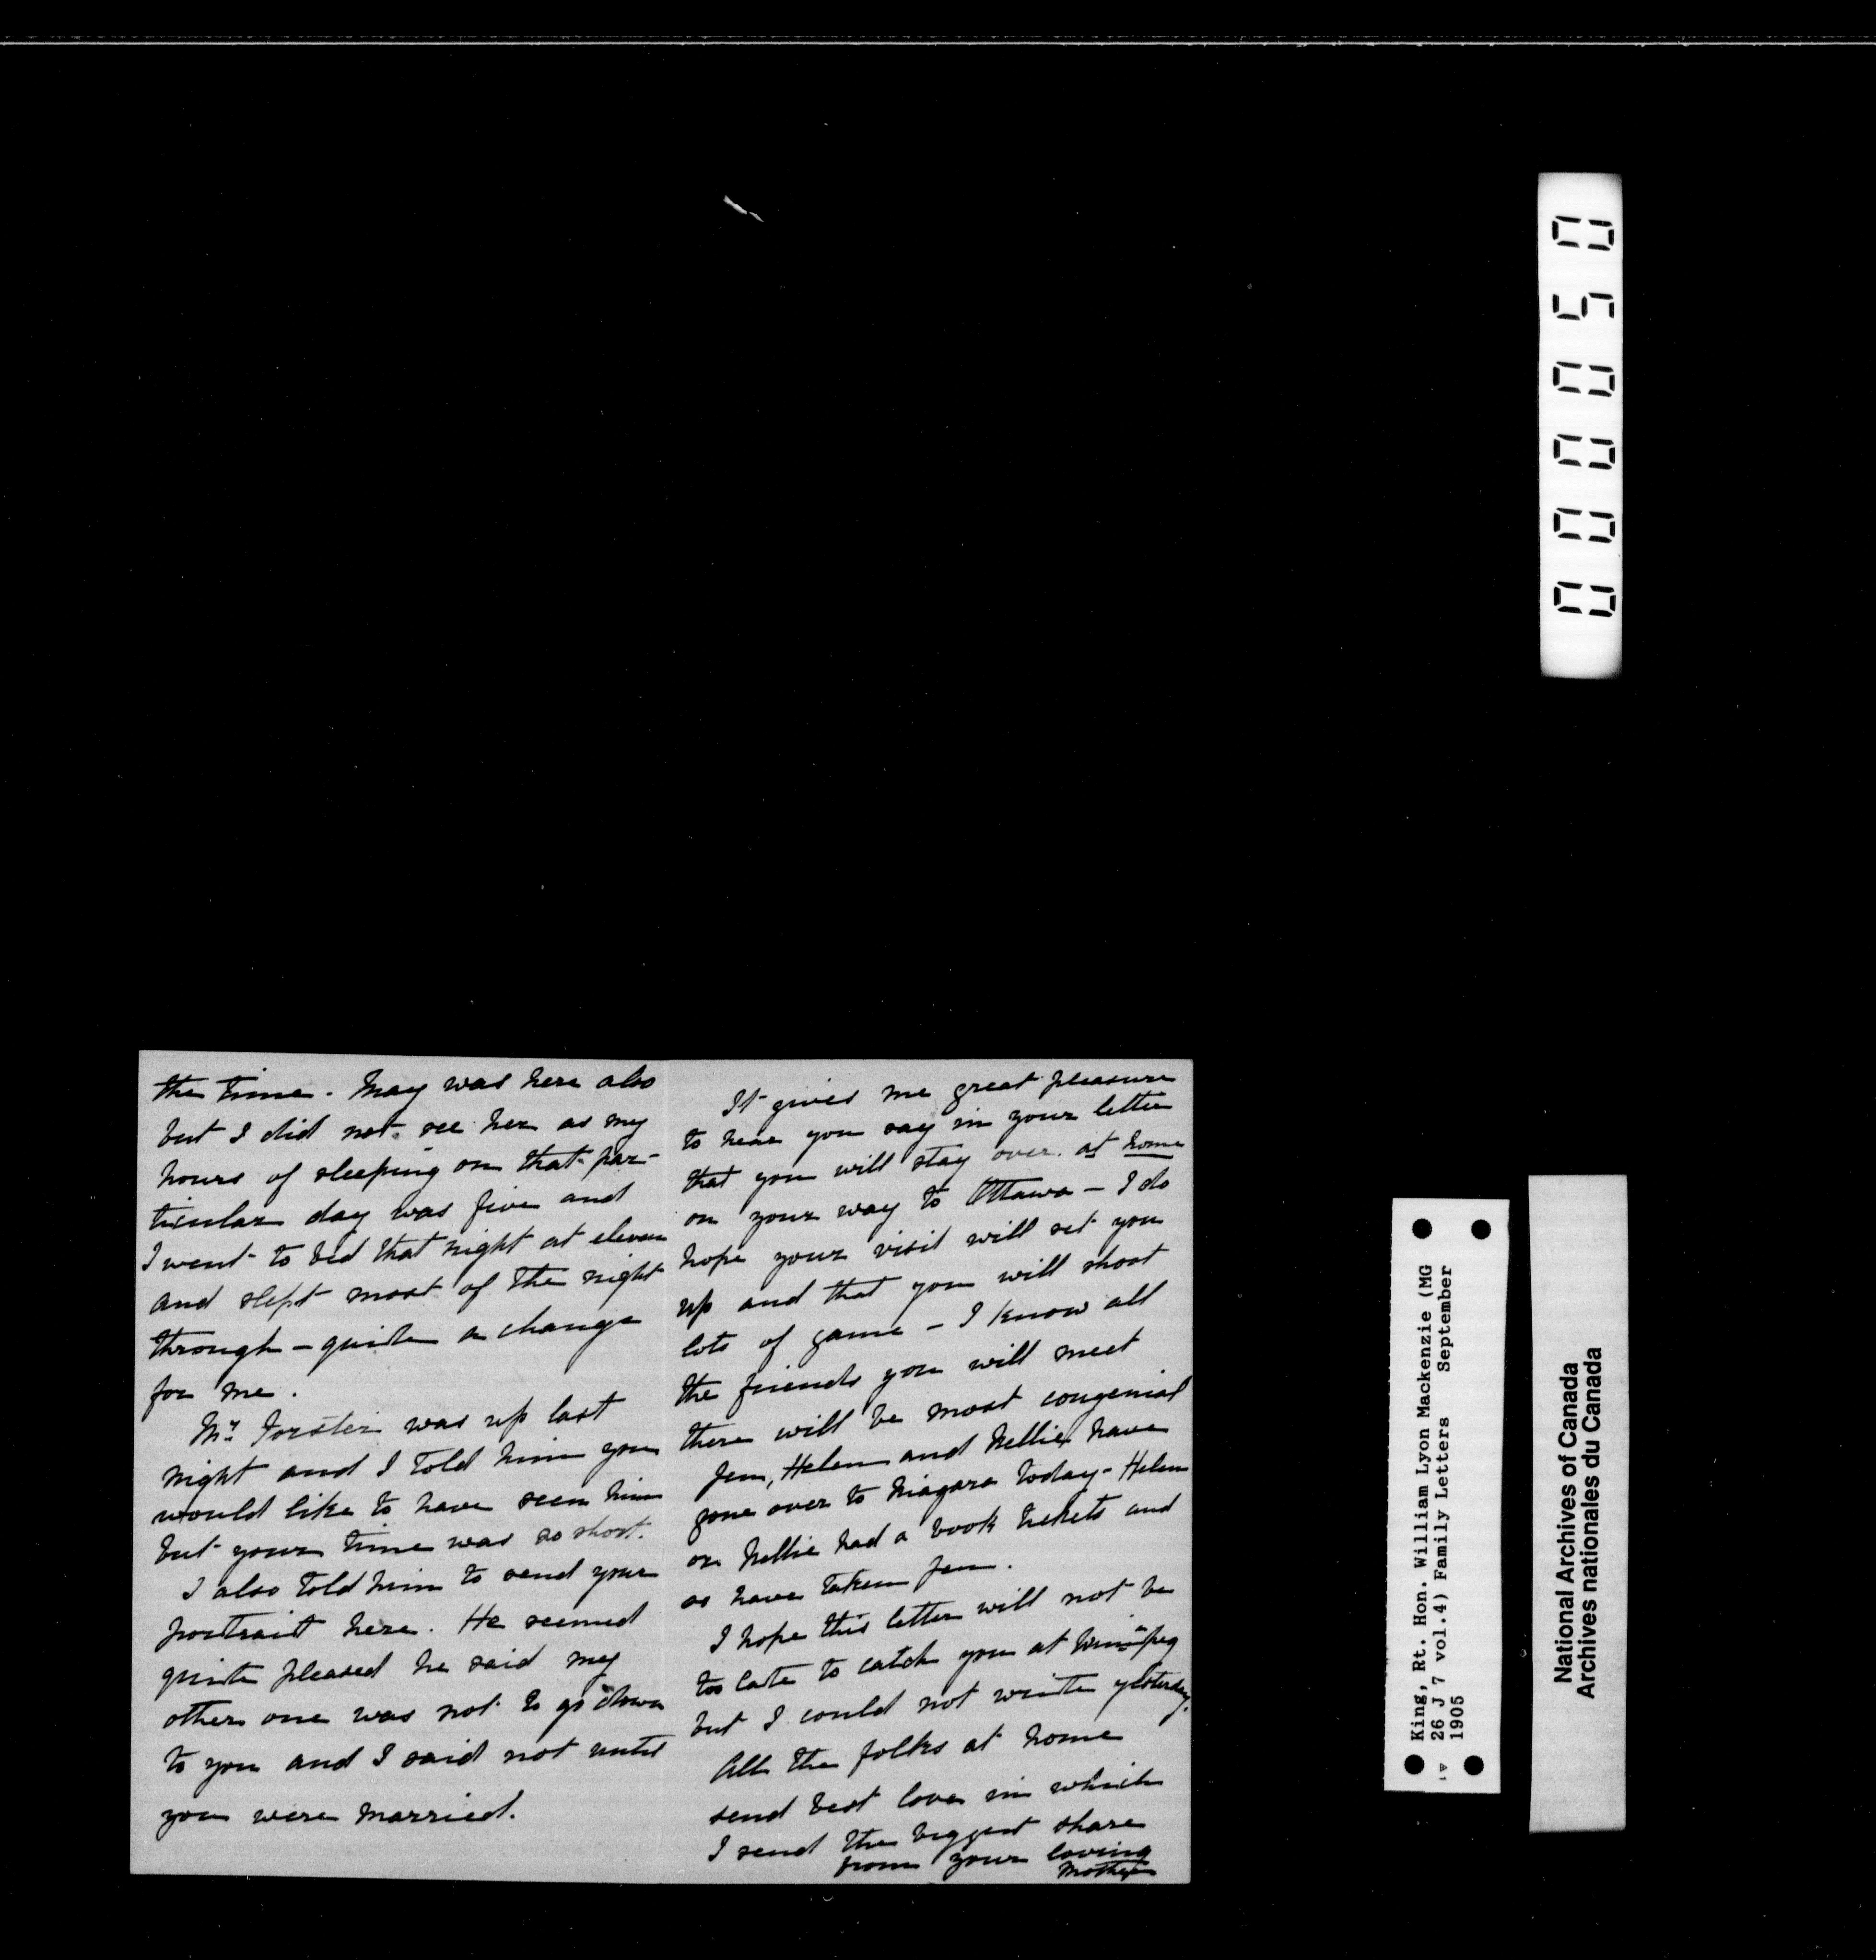 the time. May was here also
but I did not see her as my
hours of sleeping on that par-
ticular day was five and
I went to bed that night at eleven
and slept most of the night
through – quite a change
for me.
Mr Forster was up last
night and I told him you
would like to have seen him
but your time was so short.
I also told him to send your
portrait here. He seemed
quite pleased he said my
other one was not to go down
to you and I said not until
you were married.
It gives me great pleasure
to hear you say in your letter
that you will stay over at home
on your way to Ottawa – I do
hope your visit will set you
up and that you will shoot
lots of game – I know all
the friends you will meet
there will be most congenial
Jen, Helen and Nellie have
gone over to Niagara today – Helen
or Nellie had a book tickets and
so have taken Jen.
I hope this letter will not be
too late to catch you at Winnipeg
but I could not write yesterday.
All the folks at home
send best love in which
I send the biggest share
from your loving
Mother
000050
King, Rt. Hon. William Lyon Mackenzie (MG
26 J 7 vol.4) Family Letters September
1905
National Archives of Canada
Archives nationales du Canada